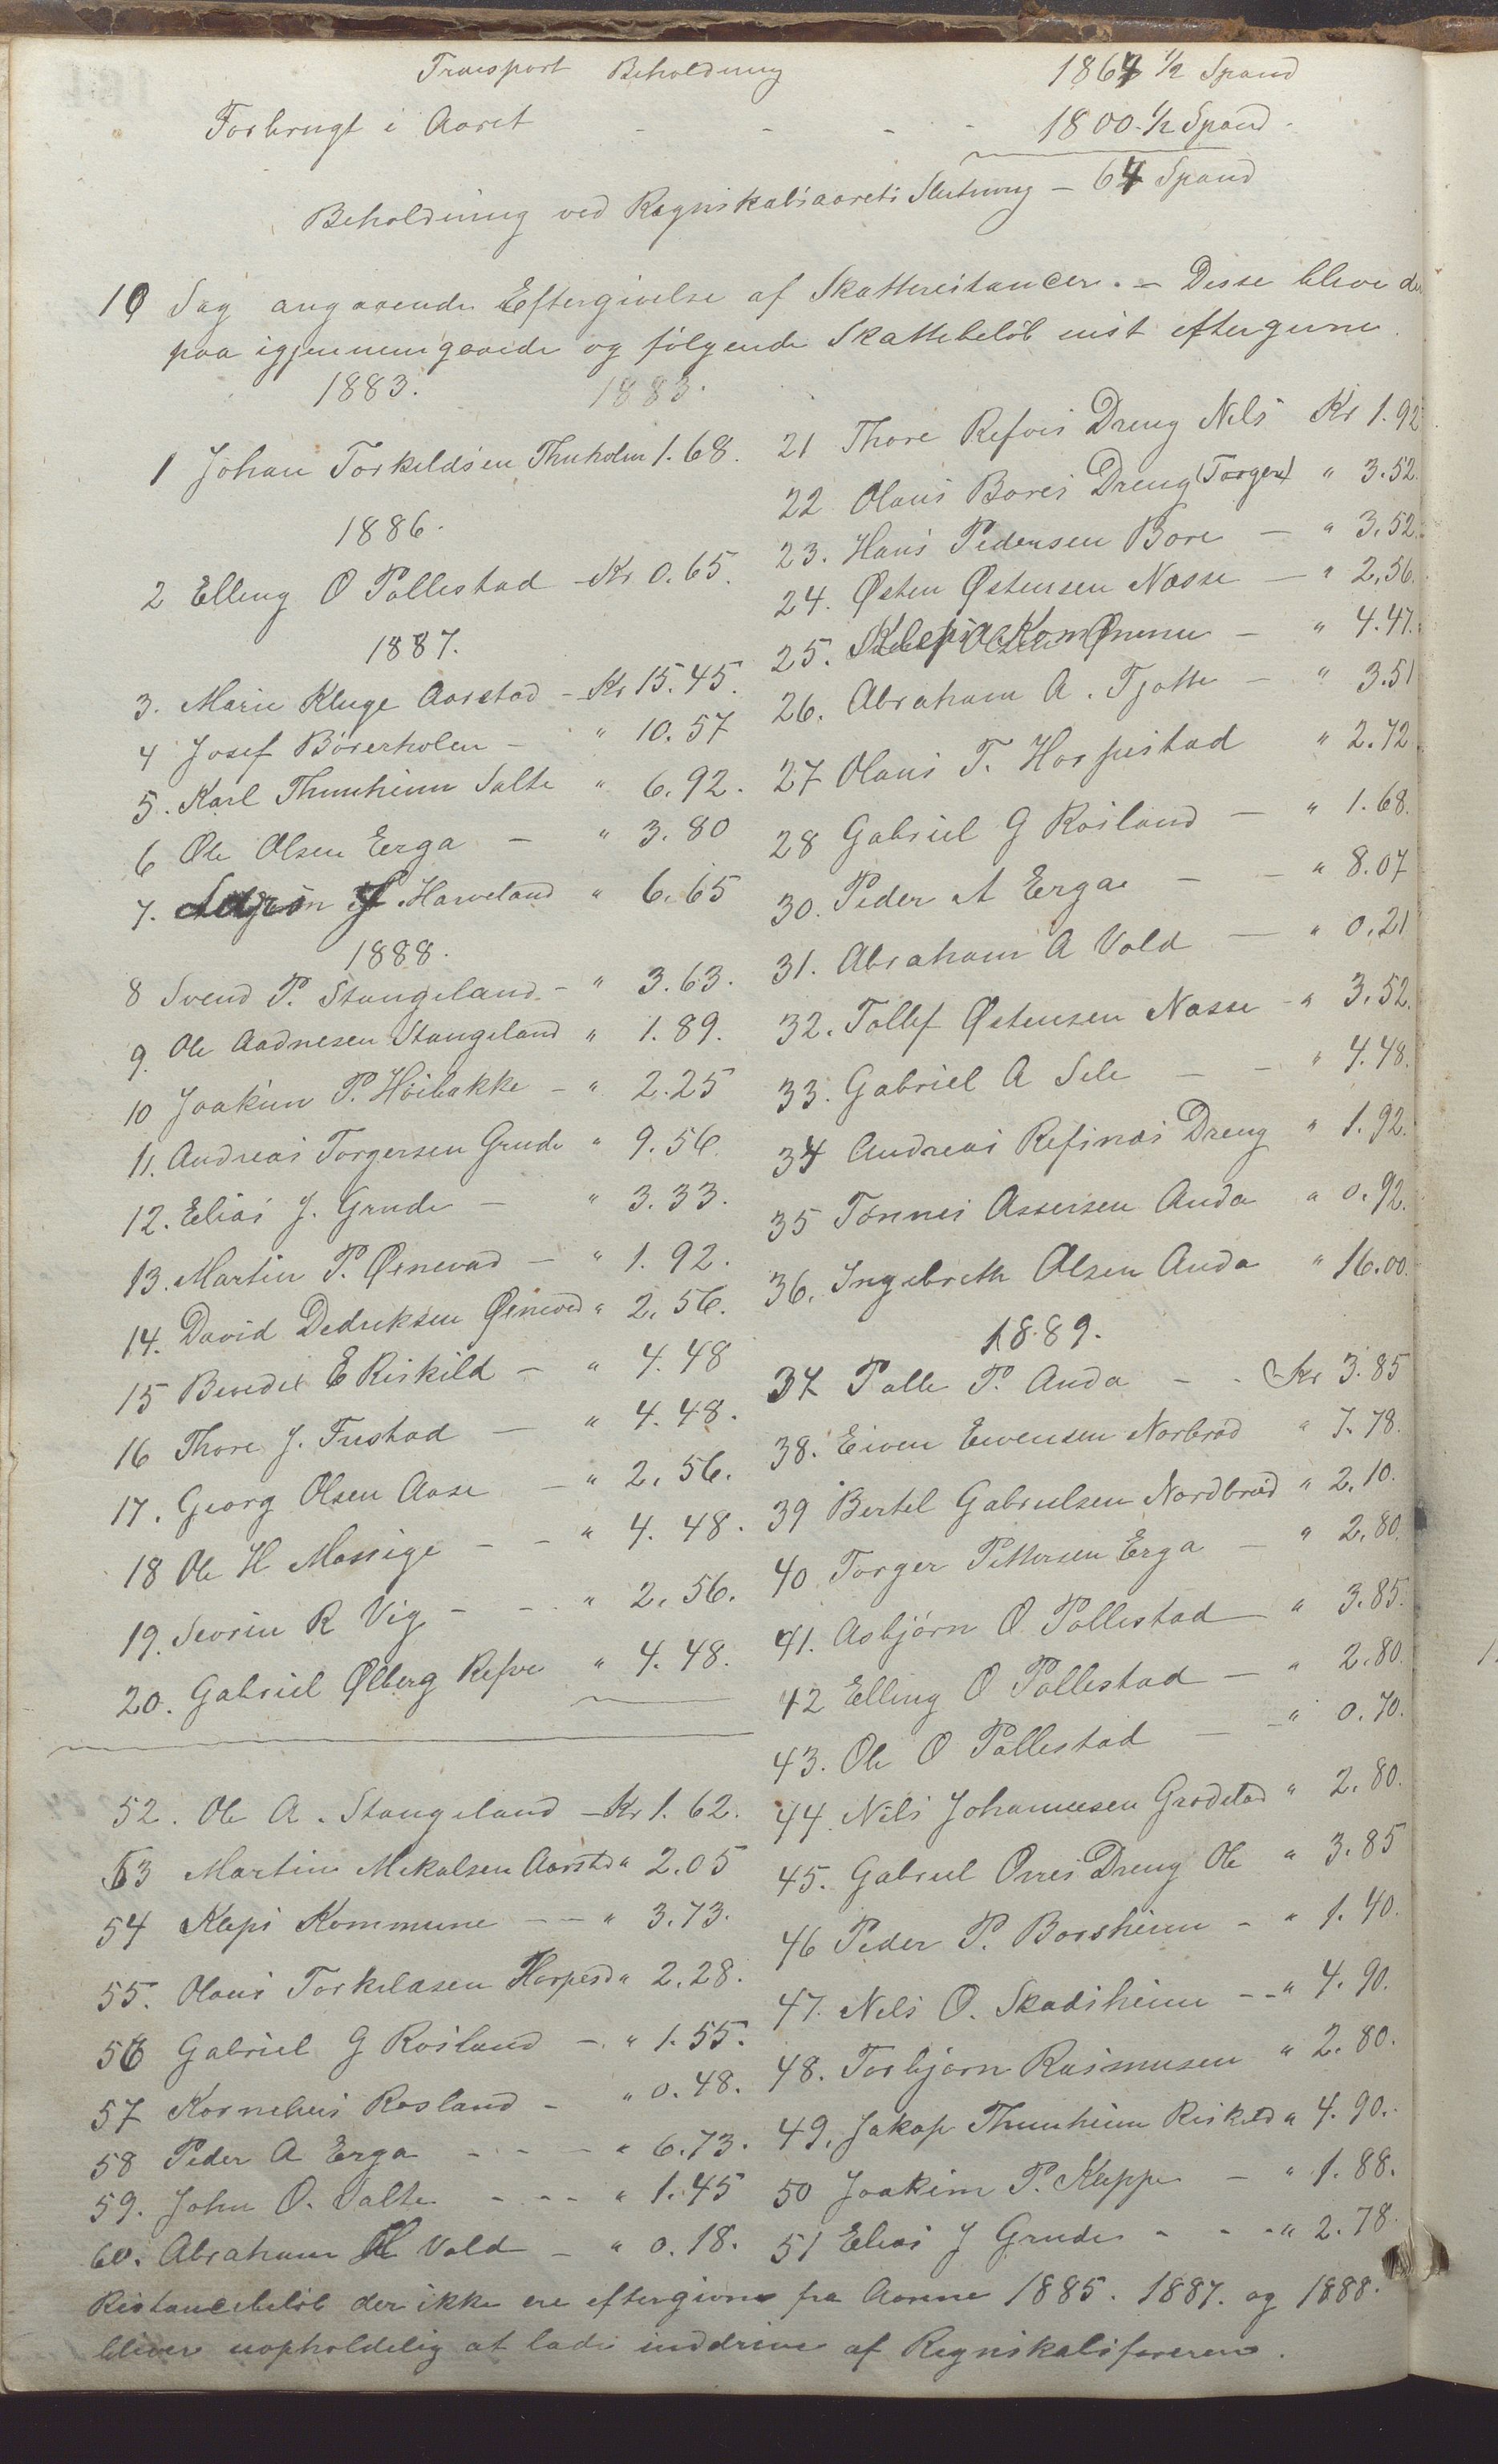 Transport Beholdning 1864 1/2 Spand
Forbrugt i Aaret - - - - 1800.1/2 Spand.
Beholdning ved Regnskabsaarets Slutning - 64 Spand
10 Sag angaaende Eftergivelse af Skatterestancer. - Disse bleve der
paa igjennemgaaede og følgende Skattebeløb enst eftergivne.
1883. 1883.
1 Johan Torkildsen Thuholm 1.68.
1886.
2 Elling O Pollestad - Kr 0.65.
1887.
3. Marie Kluge Aarstad - Kr 15.45.
4 Josef Børerholen - " 10.57
5. Karl Thunheim Salte " 6.92.
6 Ole Olsen Erga - " 3.80
7. Harveland " 6.65
1888.
8 Svend P. Stangeland - " 3.63.
9. Ole Aadnesen Stangeland " 1.89.
10 Joakim P. Høibakke - " 2.25
11. Andreas Torgersen Grude " 9.56.
12. Elias J. Grude - " 3.33.
13. Martin P. Ørnevad - " 1.92.
14. David Dedriksen Ørnevad " 2.56.
15 Benedix E Riskild - " 4.48
16 Thore J. Fustad - " 4.48.
17. Georg Olsen Aase - " 2.56.
18 Ole H Mossige - - " 4.48.
19. Sevrin R Vig - - " 2.56.
20. Gabriel Ølberg Refve " 4.48.
21 Thore Refves Dreng Nils Kr 1.92
22 Olaus Bores Dreng (Torger) " 3.52.
23. Hans Pedersen Bore - " 3.52.
24. Østen Østensen Næsse - " 2.56.
25. Kleps Kommune - " 4.47.
26. Abraham A. Tjøtte - " 3.51
27 Olaus T. Horpestad " 2.72
28 Gabriel G Rosland - " 1.68.
30. Peder A Erga - - " 8.07
31. Abraham A Vold - " 0.21
32. Tollef Østensen Næsse - " 3.52.
33. Gabriel A Sele - - " 4.48.
34 Andreas Refsnæs Dreng " 1.92.
35 Tønnes Assersen Anda " 0.92.
36. Ingebreth Olsen Anda " 16.00.
1889.
37 Palle P. Anda - - Kr 3.85
38. Eiven Eivensen Norbrød " 7.78.
39 Bertel Gabrielsen Nordbrød " 2.10.
40 Torger Pettersen Erga - " 2.80.
41. Asbjørn O Pollestad - " 3.85.
42 Elling O Pollestad - " 2.80.
43. Ole O Pollestad - - " 0.70.
44. Nils Johannesen Grødeland " 2.80.
45. Gabriel Orres Dreng Ole " 3.85
46 Peder P. Borsheim - " 1.40.
47. Nils O. Skadsheim - - " 4.90.
48. Torbjørn Rasmusen " 2.80.
49. Jakop Thunheim Riskild " 4.90.
50 Joakim P. Kleppe - " 1.88.
51 Elias J Grude - - - " 2.78.
52. Ole A. Stangeland - Kr 1.62.
53 Martin Mikalsen Aarstad " 2.05
54 Kleps Kommune - - " 3.73.
55. Olaus Torkildsen Horpestad " 2.28.
56 Gabriel G Rosland - " 1.55.
57 Kornelius Rosland - " 0.48.
58 Peder A Erga - - - " 6.73.
59. John O. Salte - - - " 1.45
60. Abraham A Vold - " 0.18.
Restancebeløb der ikke ere eftergivne fra Aarene 1885. 1887. og 1888.
bliver uopholdelig at lade inddrive af Regnskabsføreren.